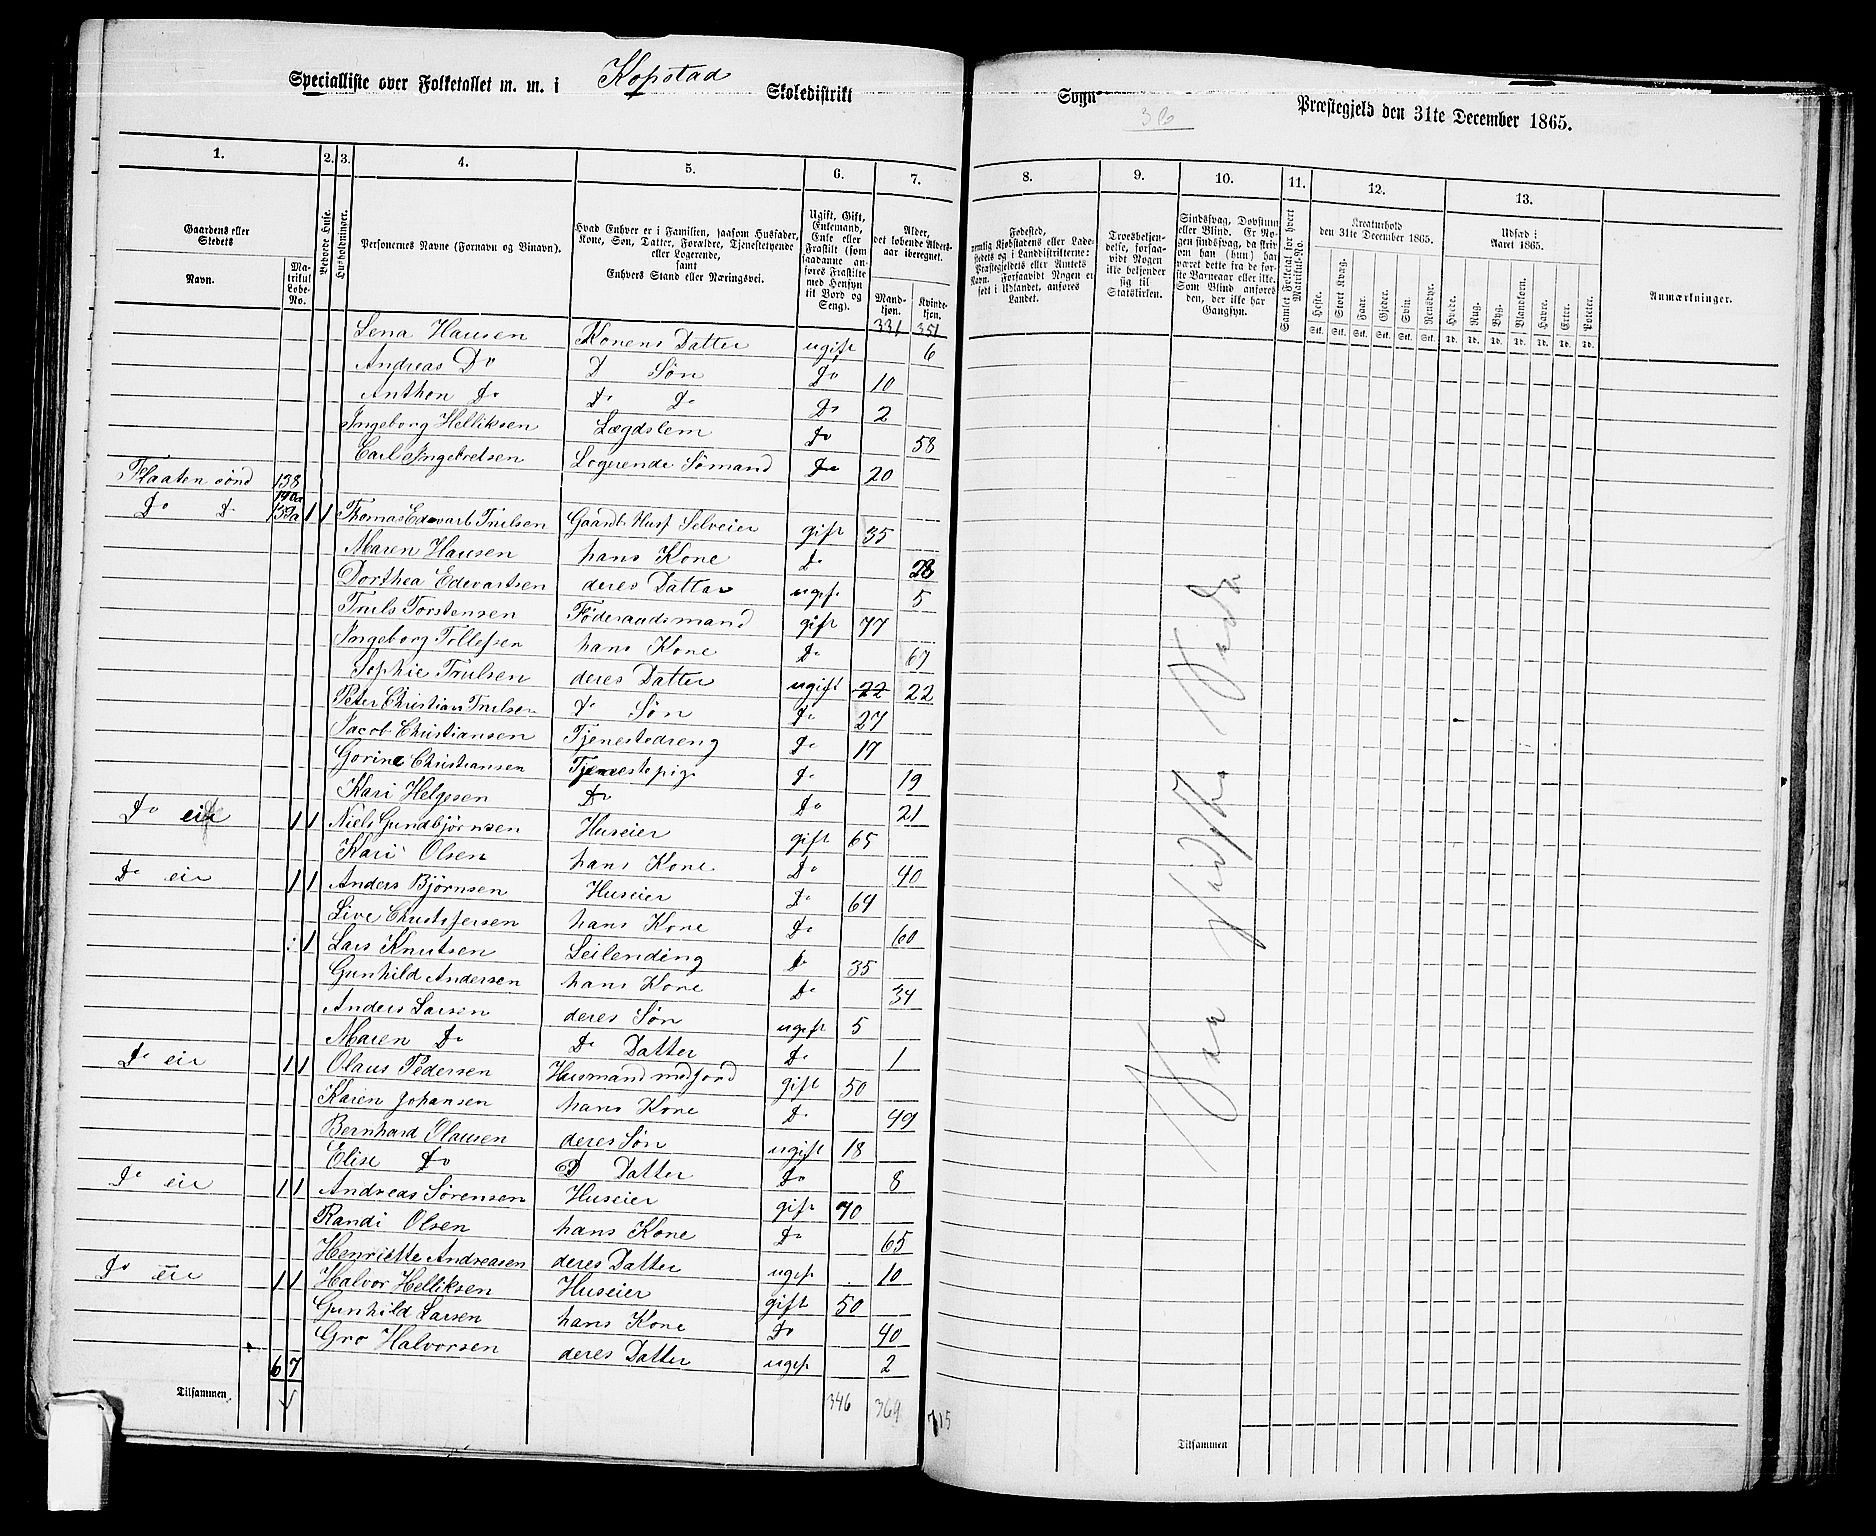 Specialliste over Folketallet m. m. i Kopstad Skoledistrikt Sogn 36 Præstegjeld den 31te December 1865.
1. 2. 3. 4. 5. 6. 7. 8. 9. 10. 11. 12. 13.
Gaardens eller Stedets
Navn.
Matrikul Løbe-No.
Beboede Huse.
Husholdninger.
Personernes Navne (Fornavn og Binavn).
Hvad Enhver er i Familien, saasom Husfader, Kone, Søn, Datter, Forældre, Tjenestetyende eller Logerende, samt Enhvers Stand eller Næringsvei.
Ugift, Gift, Enkemand, Enke eller Fraskilt (som saadanne anføres Fraskilte med Hensyn til Bord og Seng).
Alder, det løbende Alders-aar iberegnet.
Mandkjøn.
Kvindekjøn.
Fødested,
Troesbekjendelse, forsaavidt Nogen ikke bekjender sig til Statskirken.
Sindssvag, Døvstum eller Blind. Er Nogen sindssvag, da skrives om han (hun) har været dette fra de første Barneaar eller ikke. Som Blind anføres den, der ikke har Gangsyn.
Samlet Folketal for hvert Matrikul-No.
Kreaturhold den 31te December 1865.
Heste. Stort Kvæg. Faar. Gjeder. Svin. Rensdyr.
Udsæd i Aaret 1865.
Hvede. Rug. Byg. Blandkorn. Havre. Erter. Poteter.
Anmærkninger.
331 351
Lena Hansen Konens Datter ugift 6
Andreas Do D Søn Do 10
Anthon Do Do Do Do 2
Ingeborg Helliksen Lægdslem Do 58
Carl Ingebretsen Logerende Sømand Do 20
Flaaten sønd 138
Do Do 1 1 Thomas Edevart Trulsen Gaardb Husf Selveier gift 35
Maren Hansen hans Kone Do 28
Dorthea Edevartsen deres Datter ugift 5
Truls Torstensen Føderaadsmand gift 77
Ingeborg Tollefsen hans Kone Do 67
Sophie Trulsen deres Datter ugift 22 22
Peter Christian Trulsen Do Søn Do 27
Jacob Christiansen Tjenestedreng Do 17
Gorine Christiansen Tjenestepige Do 19
Kari Helgesen Do Do 21
Do eie 1 1 Niels Gundbjørnsen Huseier gift 65
Kari Olsen hans Kone Do 40
Do eie 1 1 Anders Bjørnsen Huseier Do 64
Live Christofersen hans Kone Do 60
1 Lars Knutsen Leilending Do 35
Gunhild Andersen hans Kone Do 34
Anders Larsen deres Søn ugift 5
Maren Do Do Datter Do 1
Do eie 1 1 Olaus Pedersen Husmand med jord gift 50
Karen Johansen hans Kone Do 49
Bernhard Olausen deres Søn ugift 18
Elise Do D Datter Do 8
Do eie 1 1 Andreas Sørensen Huseier gift 70
Randi Olsen hans Kone Do 65
Henriette Andreasen deres Datter ugift 10
Do eie 1 1 Halvor Helliksen Huseier gift 50
Gunhild Larsen hans Kone Do 40
Gro Halvorsen deres Datter ugift 2
6 7
Tilsammen 346 369 715
Tilsammen